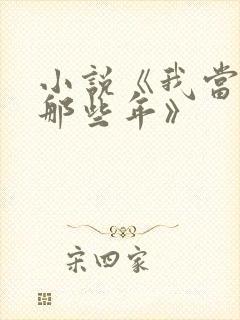 小說《我當
那些年》
宋四家